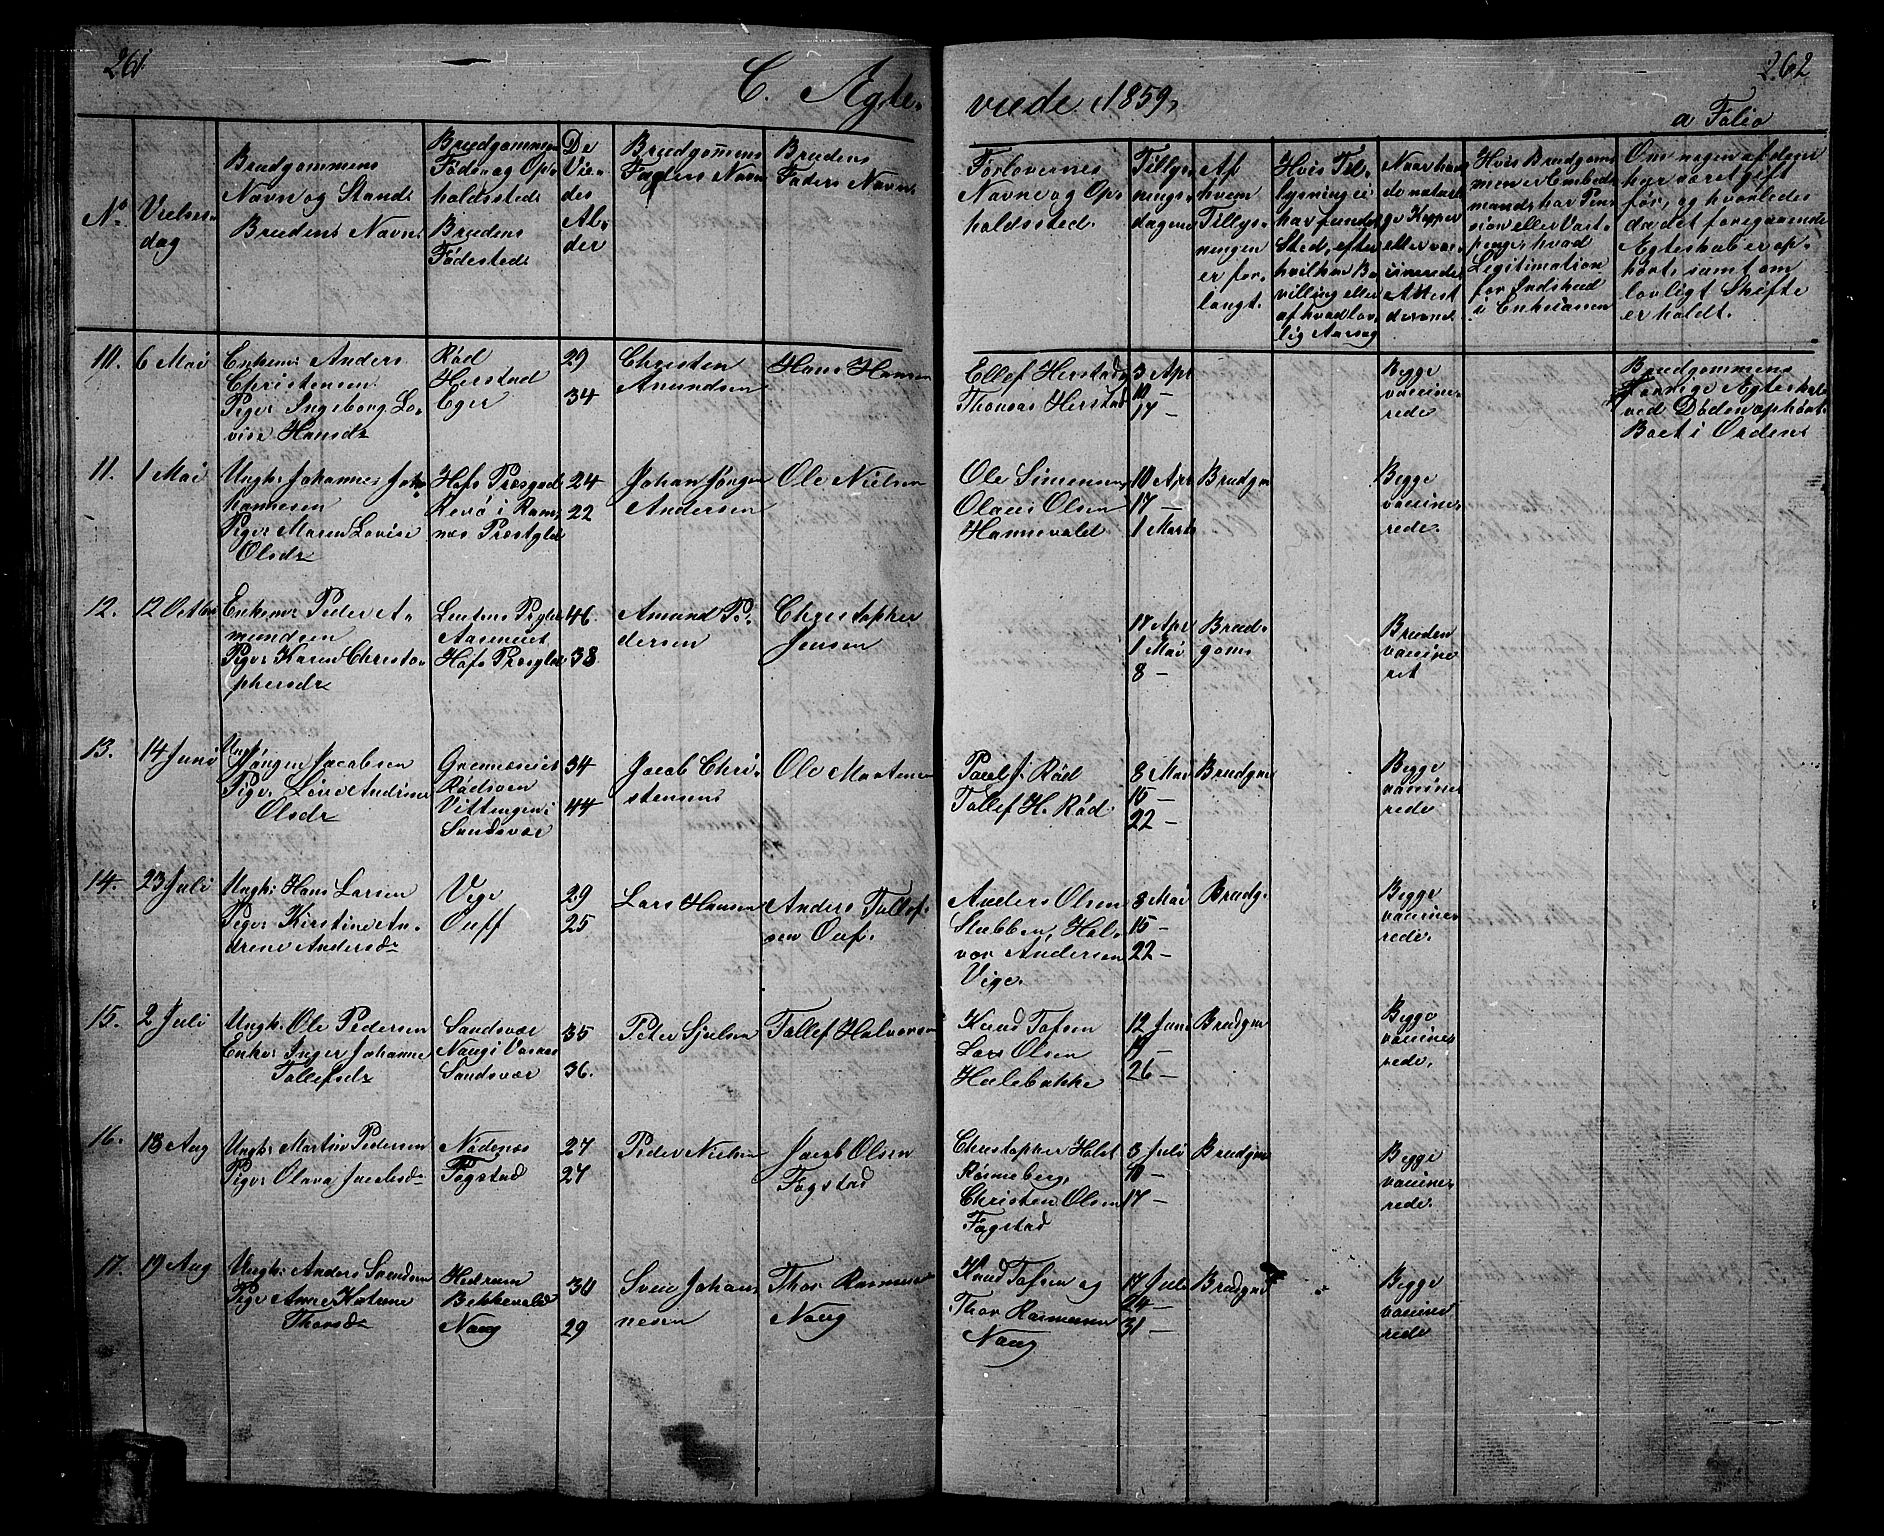 261.
262
C. Ægte-
viede 1859,
a Folio
No
Vielses-
dag
Brudgommens
Navn og Stand
Brudens Navn
Brudgommens
Føde- og Op-
holdssted
Brudens
Fødested
De
Vie-
des
Al-
der
Brudgommens
Faders Navn
Brudens
Faders Navn
Forlovernes
Navne og Op-
holdssted.
Tillys-
nings-
dagene
Af
hvem
Tillys-
ningen
er for-
langt.
Hvis Til-
lysning ei
har fundet
Sted, efter
hvilken Be-
villing eller
af hvad lov-
lig Aarsag
Naar havt
de naturli-
ge Kopper
eller vac-
cinerede
Attest
derom
Hvis Brudgom-
men er Embeds-
mand, har Pen-
sion eller Vart-
penge, hvad
Legitimation
for Indskud
i Enkekassen
Om nogen af dem
har været gift
før, og hvorledes
da det foregaaende
Ægteskab er op-
hørt, samt om
lovligt Skifte
er holdt.
10. 6 Mai
Enkem: Anders
Christensen
Pige: Ingeborg Lo-
vise Hansdr
Rød
Herstad
Eger
29
34
Christen
Amundsen
Hans Hansen
Ellef Herstad
Thomas Herstad
3 Apr
10 —
17 —
Begge
vaccine-
rede
Brudgommens
forrige Ægteskab
ved Døden ophørt
Boet i Orden
11. 1 Mai
Ungk: Johannes Joh-
annesen
Pige: Maren Lovise
Olsdr
Hofs Præsgjeld
Revø i Ram-
næs Præstgjeld
24
22
Johan Jørgen
Andersen
Ole Nielsen
Ole Simensen
Olaus Olsen
Hannevold
10 Apr
17 —
1 Marts
Brudgm
Begge
vaccine-
rede.
12. 12 Octbr
Enkem: Peder A-
mundsen
Pige: Karen Christo-
phersdr
Aaserniet
Hofs Præsgjeld
46.
38
Amund Pe-
dersen
Christopher
Jensen
17 Apr
1 Mai
8 —
Brud-
goms
Bruden
vaccine-
ret
13. 14 Juni
Ungk:
Jørgen Jacobsen
Pige: Lovise Andrine
Olsdr
Rødsven
Vittingen i
Sandsvær
34
44
Jacob Chri-
stensens
Ole Mortensen
Paul J. Rød
Tollef H. Rød.
8 Mai
15 —
22 —
Brudgm
Begge
vaccine-
rede
14. 23 Juli
Ungk: Hans Larsen
Pige: Kirstine An-
drine Andersdr
Vige
Ouff
29
25
Lars Hansen
Anders Tollef-
sen Ouf.
Anders Olsen
Stubben, Hal-
vor Andersen
Vige.
8 Mai
15 —
22 —
Brudg.
Begge
vaccine-
rede.
15. 2 Juli
Ungk: Ole Pedersen
Enke: Inger Johanne
Tollefsdr
Sandsvær
Naugi Vasaas
Sandsvær
35
36.
Peter Sjulsen
Tollef Halvorsen
Knud Tofsen
Lars Olsen
Hulebakke
12 Juni
19 —
26 —
Brudgm
Begge
vaccine-
rede.
16. 13 Aug
Ungk: Martin Pedersen
Pige: Olava Jacobsdr
Nødenæs
Fogstad
27
27
Peder Nielsen
Jacob Olsen
Fogstad
Christopher Holst
Rønneberg,
Christen Olsen
Fogstad
3 Juli
10 —
17 —
Brudgm
Begge
vaccine-
rede.
17. 19 Aug
Ungk: Anders Svendsen
Pige Anne Katrine
Thorsdr
Hedrum
Bekkevold
Naug
30
29
Sven Johan-
nesen
Thor Rasmussen
Naug
Knud Tofsen og
Thor Rasmussen
Naug
17 Juli
24 —
31 —
Brudgm
Begge
vaccine-
rede